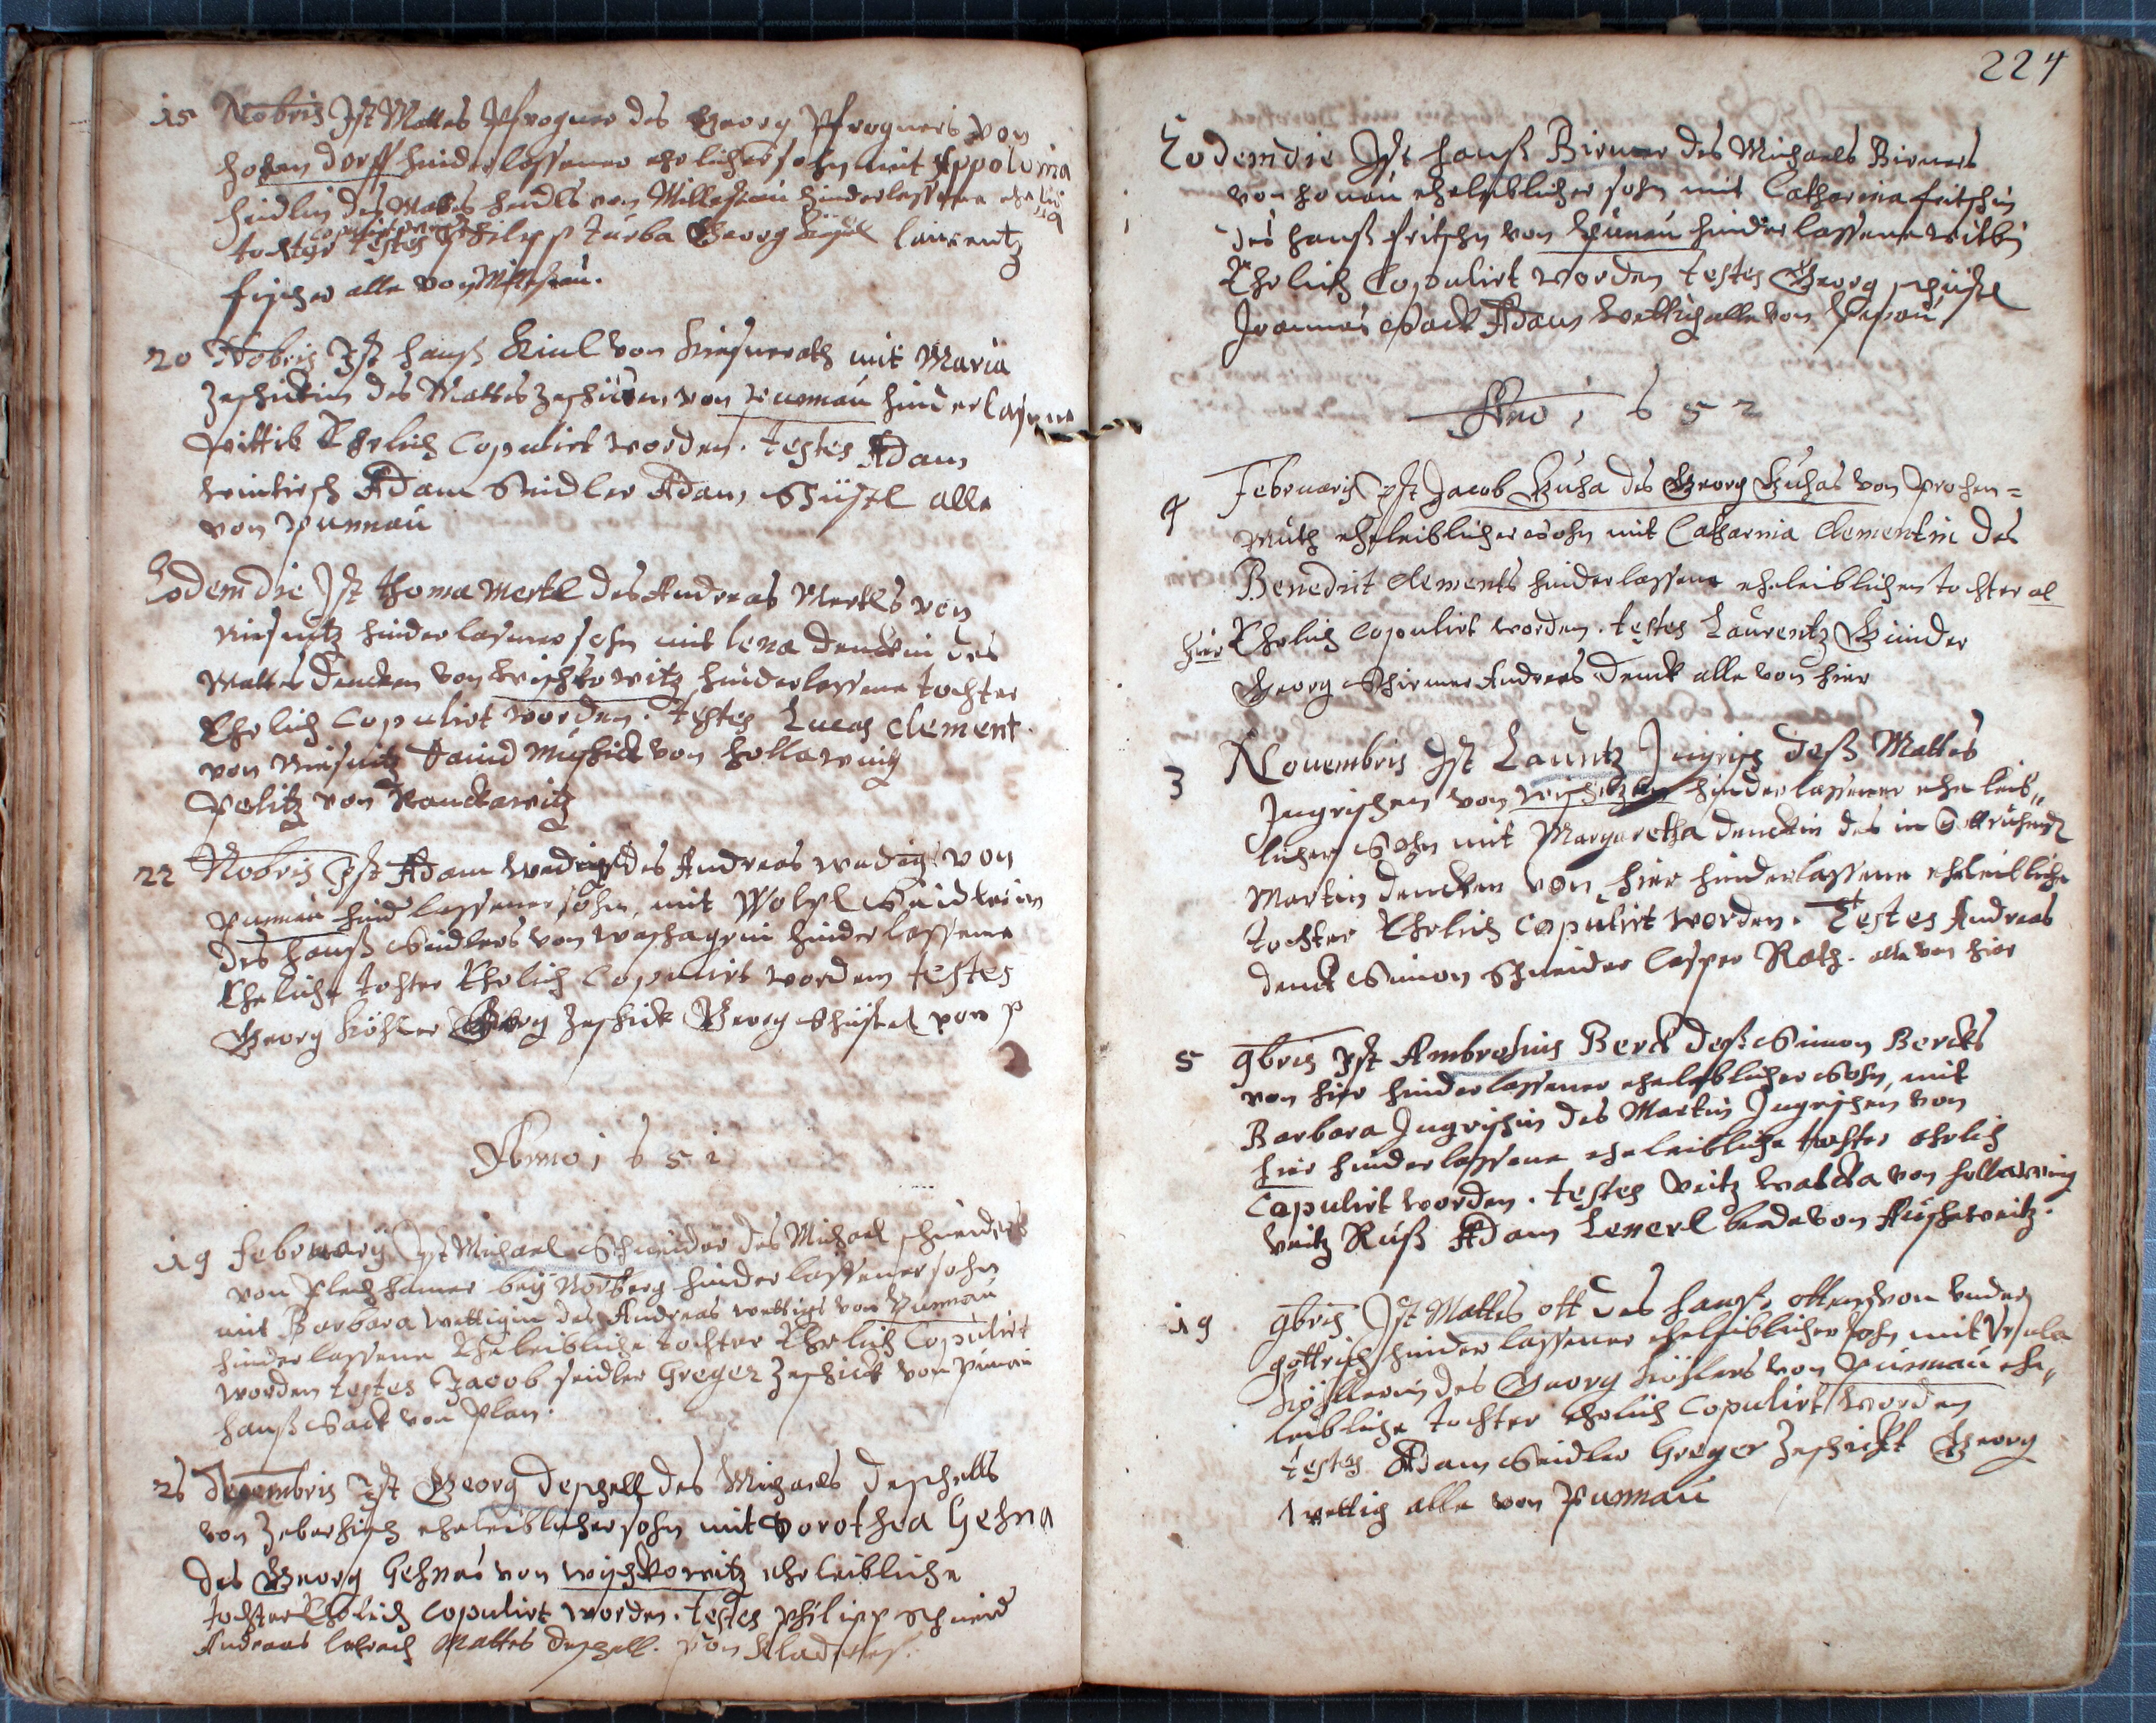 15 Nobris Ist Mattes Pfrogner des Georg Pfrogners von
hohen dorff hinderlassener ehrlicher sohn mit Appolonia
heidlin des Mates heidls von Milleschau hinderlassene
tochter copulirt worden testes Philipp Turba Georg laurentz
fischer alle von Milleschau.
20 Nobris Ist hanß Kiul von mit Maria
Zeschickin des Mattes Zeschicken von Purnau hinderlassene
Wittib Ehrlich Copulirt worden. testes Adam
Adam Seidler Adam Schüstl alle
von Purnau
Eodem die Ist thoma Mertl des Andreas Mertls von
hinderlasener sohn mit lena denckin des
Mattes dencken von Wischkowitz hinderlassene tochter
Ehrlich Copulirt worden. testes Lucas Clement
von David Muschick von hollawing
von Ranckawitz
22 Nobris Ist Adam Wedig des Andreas Wedig von
Purnau hind lassener sohn, mit Seidlerin
des hanß Seidlers von Waschagrün hinderlassene
Eheliche tochter Ehrlich Copulirt worden testes
Georg Köhler Georg Zeschick Georg Schüstel von P
Anno 1651
19 february Ist Michael Schneider des Michael schneiders
von Plechhamer bey Norberg hinderlassener sohn
mit Barbara Wettigin des Andreas Wettigs von Purnau
hinderlassene Eheleibliche tochter Ehrlich Copulirt
worden testes Jacob seidler Greger Zeschick von Purnau
hanß Sack von Plan.
26 Decembris Ist Georg deschell des Michaels deschells
von eheleiblicher sohn mit Dorothea Gehna
des Georg Gehnas von Wischkowitz eheleibliche
tochter Ehrlich copulirt worden. testes Philipp Schneid
Andreas Mattes deschell. von
224
Eodem die Ist hanß Birner des Michaels Birners
von honau eheleiblicher sohn mit Catharina fritschin
des hanß fritschn von Purnau hinderlassene witbin
Ehrlich Copulirt worden testes Georg schüstl
Joannes Sack Adam Wettig alle von Purnau
Ano 1652
4 Februarij Ist Jacob Guha des Georg Guhas von Prohen=
muth eheleiblicher sohn mit Catharina Clementin des
Benedict Clements hinderlassene eheleiblichen tochter al
hier Ehrlich Copulirt worden. testes Laurentz Günder
Georg Schirmer Andreas Denck alle von hier
3 Nouembris Ist Laurentz Ingrisch deß Mattes
Ingrischen von hinderlassener ehe leib„
licher Sohn mit Margaretha denckin des in Gott ruhendt
Martin dencken von hier hinderlassene eheleibliche
tochter Ehrlich Copulirt worden. Testes Andreas
denck Simon Schneider Casper Rath. alle von hier
5 9bris Ist Ambrosius Berck deß Simon Bercks
von hier hinderlassener eheleiblicher Sohn, mit
Barbara Ingrischin des Martin Ingrischen von
hier hinderlassene eheleibliche tochter ehrlich
Copulirt worden. testes Veitz Watzka von hollawing
Veitz Ruß Adam Lenerl beede von Auschowitz.
19 9bris Ist Mattes ott des hanß otten von Under
gottrisch hinderlassener eheleiblicher sohn mit Ursula
Köhllerin des Georg Köhlers von Purnau ehe„
leibliche tochter ehrlich Copulirt worden
testes Adam Seidler Greger Zeschickt Georg
Wettig alle von Purnau